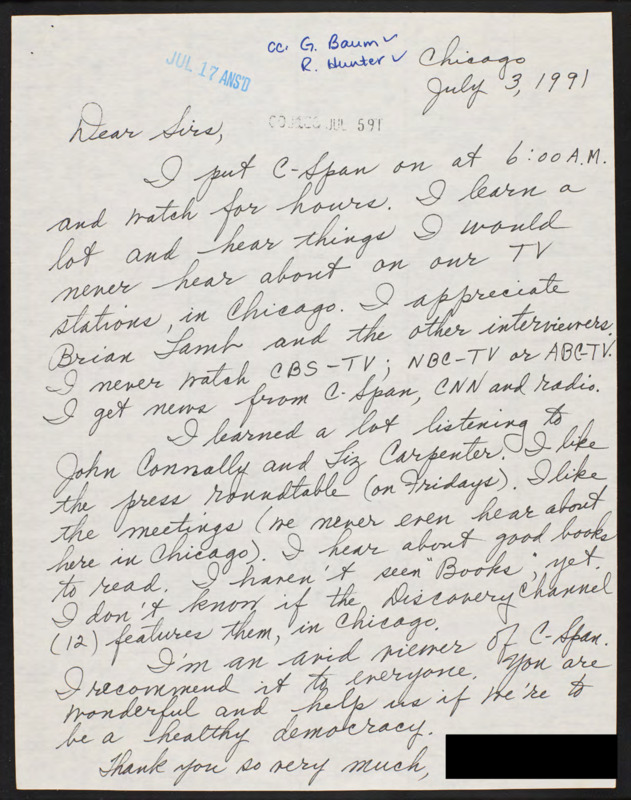 cc: G. Baum ✓
R. Hunter ✓
JUL 17 ANS'D
Chicago
July 3, 1991
JUL 5 91
Dear Sirs,
I put C-Span on at 6:00 A.M.
and watch for hours. I learn a
lot and hear things I would
never hear about on our TV
stations, in Chicago. I appreciate
Brian Lamb and the other interviewers.
I never watch CBS-TV; NBC-TV or ABC-TV.
I get news from C-Span, CNN and radio.
I learned a lot listening to
John Connally and Liz Carpenter. I like
the press roundtable (on Fridays). I like
the meetings (we never even hear about
here in Chicago). I hear about good books
to read. I haven't seen "Books", yet.
I don't know if the Discovery Channel
(12) features them, in Chicago.
I'm an avid viewer of C-Span.
I recommend it to everyone. You are
wonderful and help us if we're to
be a healthy democracy.
Thank you so very much,